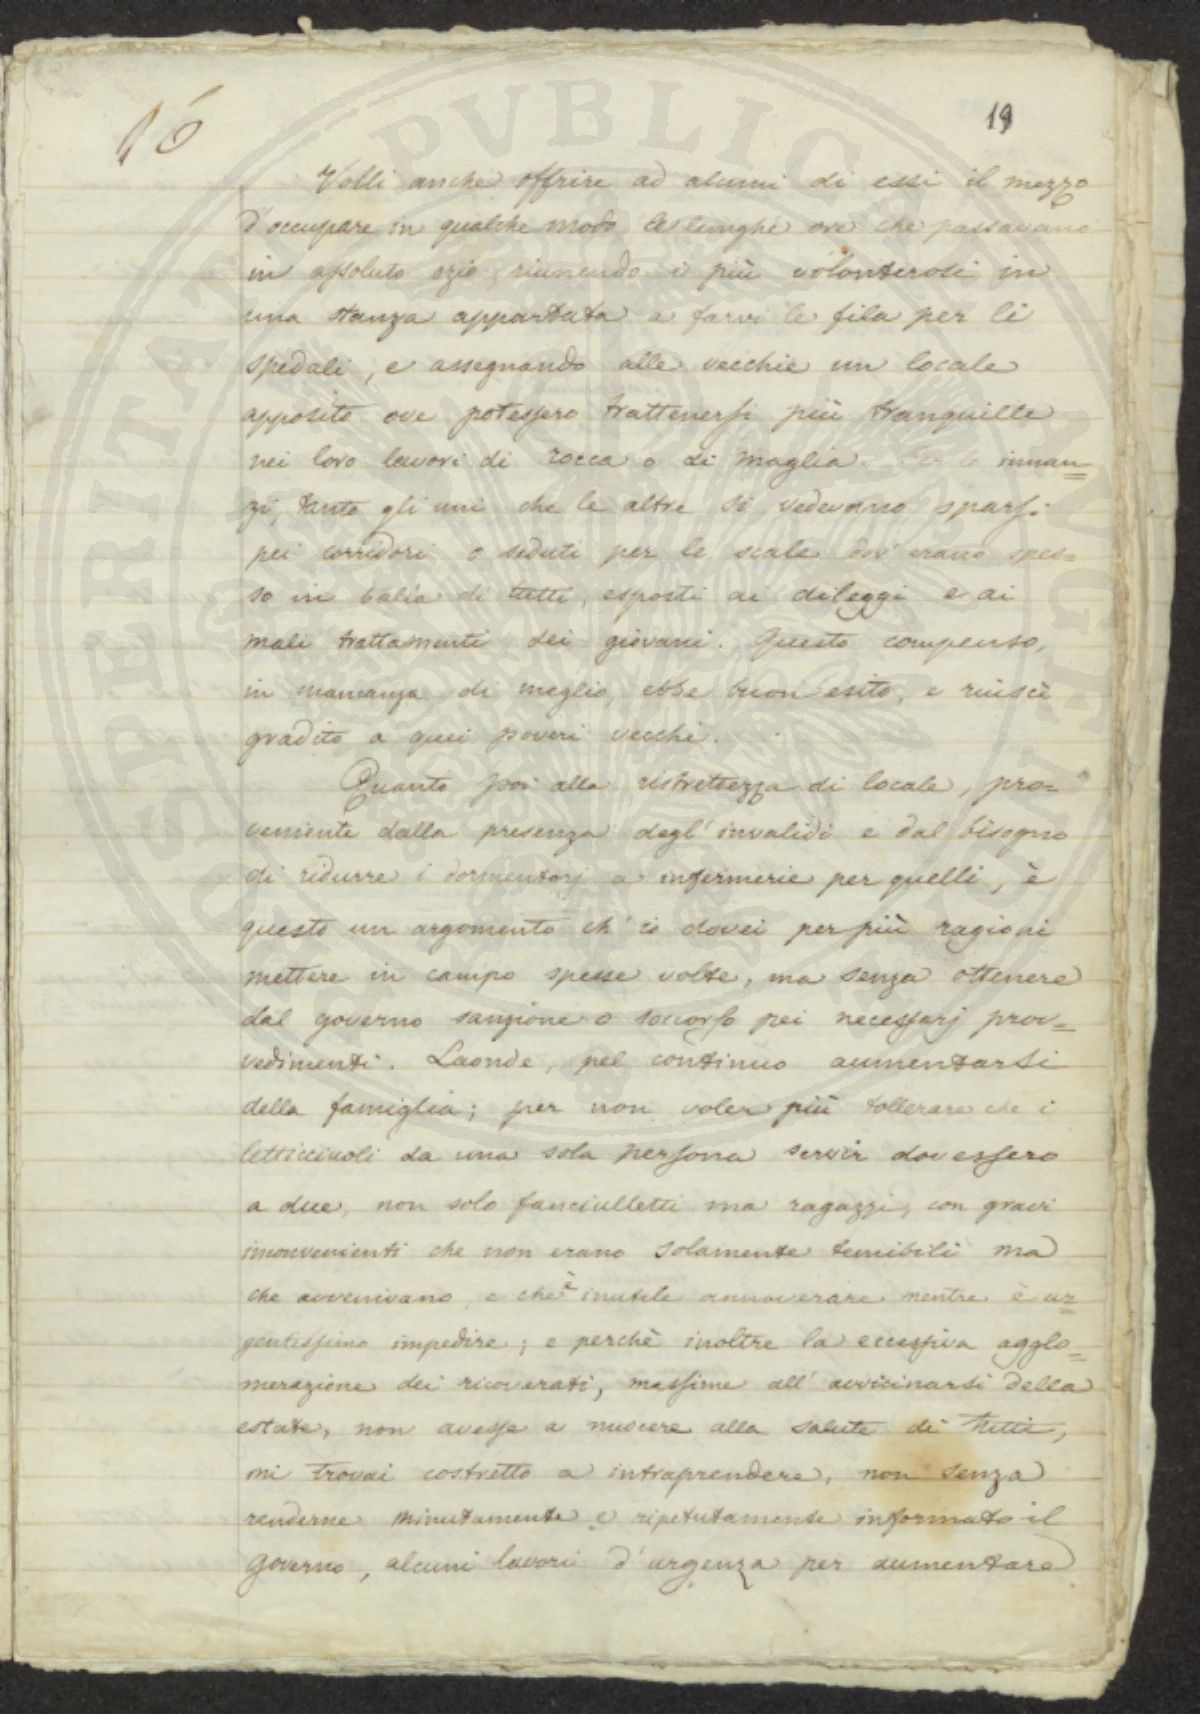 16
19
Volli anche offrire ad alcuni di essi il mezzo
d'occupare in qualche modo le lunghe ore che passavano
in assoluto ozio, riunendo i più volonterosi in
una stanza appartata a farvi le fila per li
spedali, e assegnando alle vecchie un locale
apposito ove potessero trattenersi più tranquille
nei loro lavori di rocca o di maglia. Per lo innan=
zi, tanto gli uni che le altre si vedevano sparsi
pei corridori o seduti per le scale dov'erano spes=
so in balìa di tutti, esposti ai dileggi e ai
mali trattamenti dei giovani. Questo compenso,
in mancanza di meglio, ebbe buon esito, e riuscì
gradito a quei poveri vecchi.
Quanto poi alla ristrettezza di locale, pro=
veniente dalla presenza degl'invalidi e dal bisogno
di ridurre i dormentorj a infermerie per quelli, è
questo un argomento ch'io dovei per più ragioni
mettere in campo spesse volte, ma senza ottenere
dal governo sanzione o soccorso pei necessarj prov=
vedimenti. Laonde, pel continuo aumentarsi
della famiglia; per non voler più tollerare che i
letticciuoli da una sola persona servir dovessero
a due, non solo fanciulletti ma ragazzi, con gravi
inconvenienti che non erano solamente temibili ma
che avvenivano, e che è inutile annoverare mentre è ur=
gentissimo impedire; e perchè inoltre la eccessiva agglo=
merazione dei ricoverati, massime all'avvicinarsi della
estate, non avesse a nuocere alla salute di tutti,
mi trovai costretto a intraprendere, non senza
renderne minutamente e ripetutamente informato il
Governo, alcuni lavori d'urgenza per aumentare